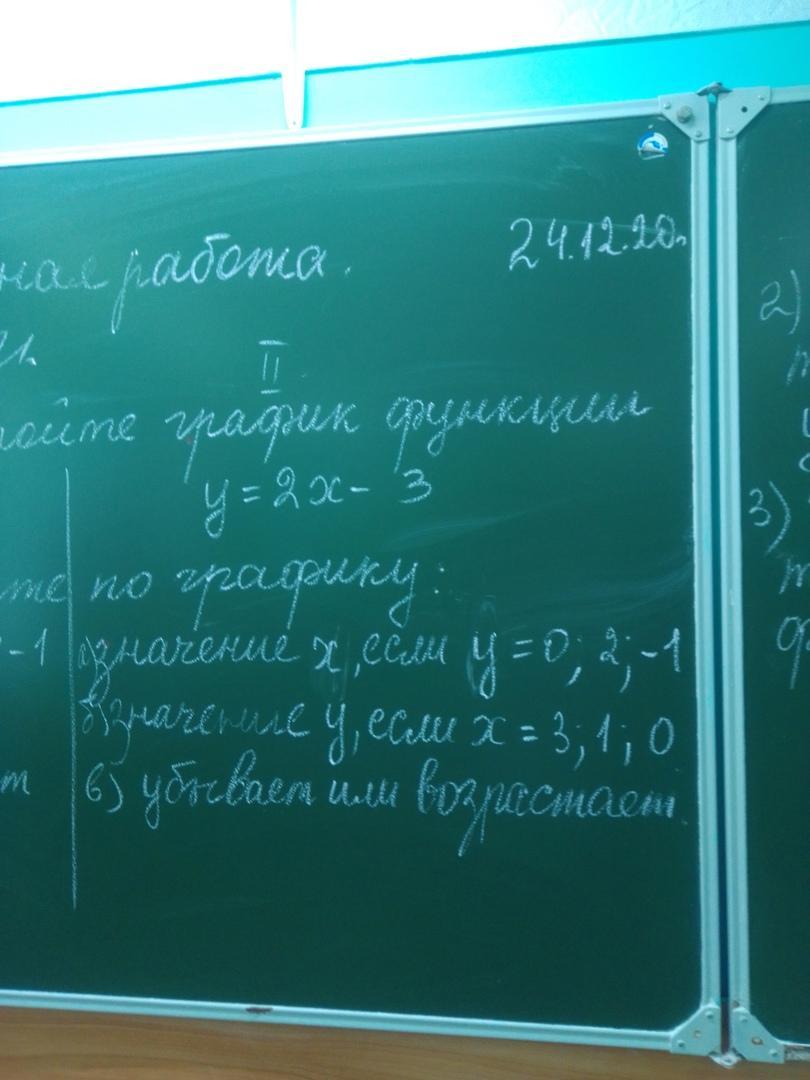 ная работа. 24.12.20г
II
ройте график функции
y = 2x - 3
те по графику:
-1 а) значение x, если y = 0; 2; -1
б) значение y, если x = 3; 1; 0
т в) убывает или возрастает.
2)
3)